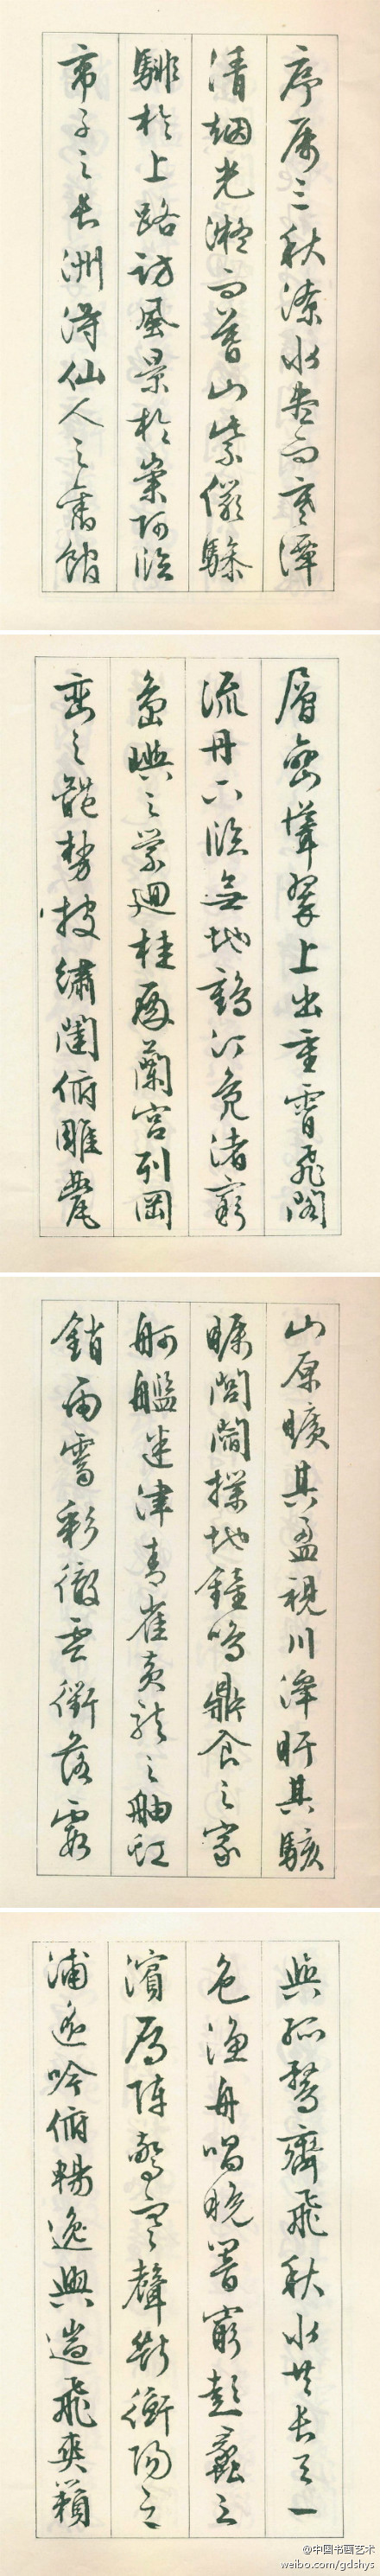 序屬三秋潦水盡而寒潭
清烟光凝而暮山紫儼驂
騑於上路訪風景於崇阿臨
帝子之長洲得仙人之舊館
層巒聳翠上出重霄飛閣
流丹下臨無地鶴汀鳧渚窮
島嶼之縈迴桂殿蘭宮列岡
巒之體勢披繡闥俯雕甍
山原曠其盈視川澤盱其駭
矚閭閻撲地鐘鳴鼎食之家
舸艦迷津青雀黃龍之舳虹
銷雨霽彩徹雲衢落霞
與孤鶩齊飛秋水共長天一
色漁舟唱晚響窮彭蠡之
濱雁陣驚寒聲斷衡陽之
浦遙吟俯暢逸興遄飛爽籟
@中国书画艺术
weibo.com/gdshys